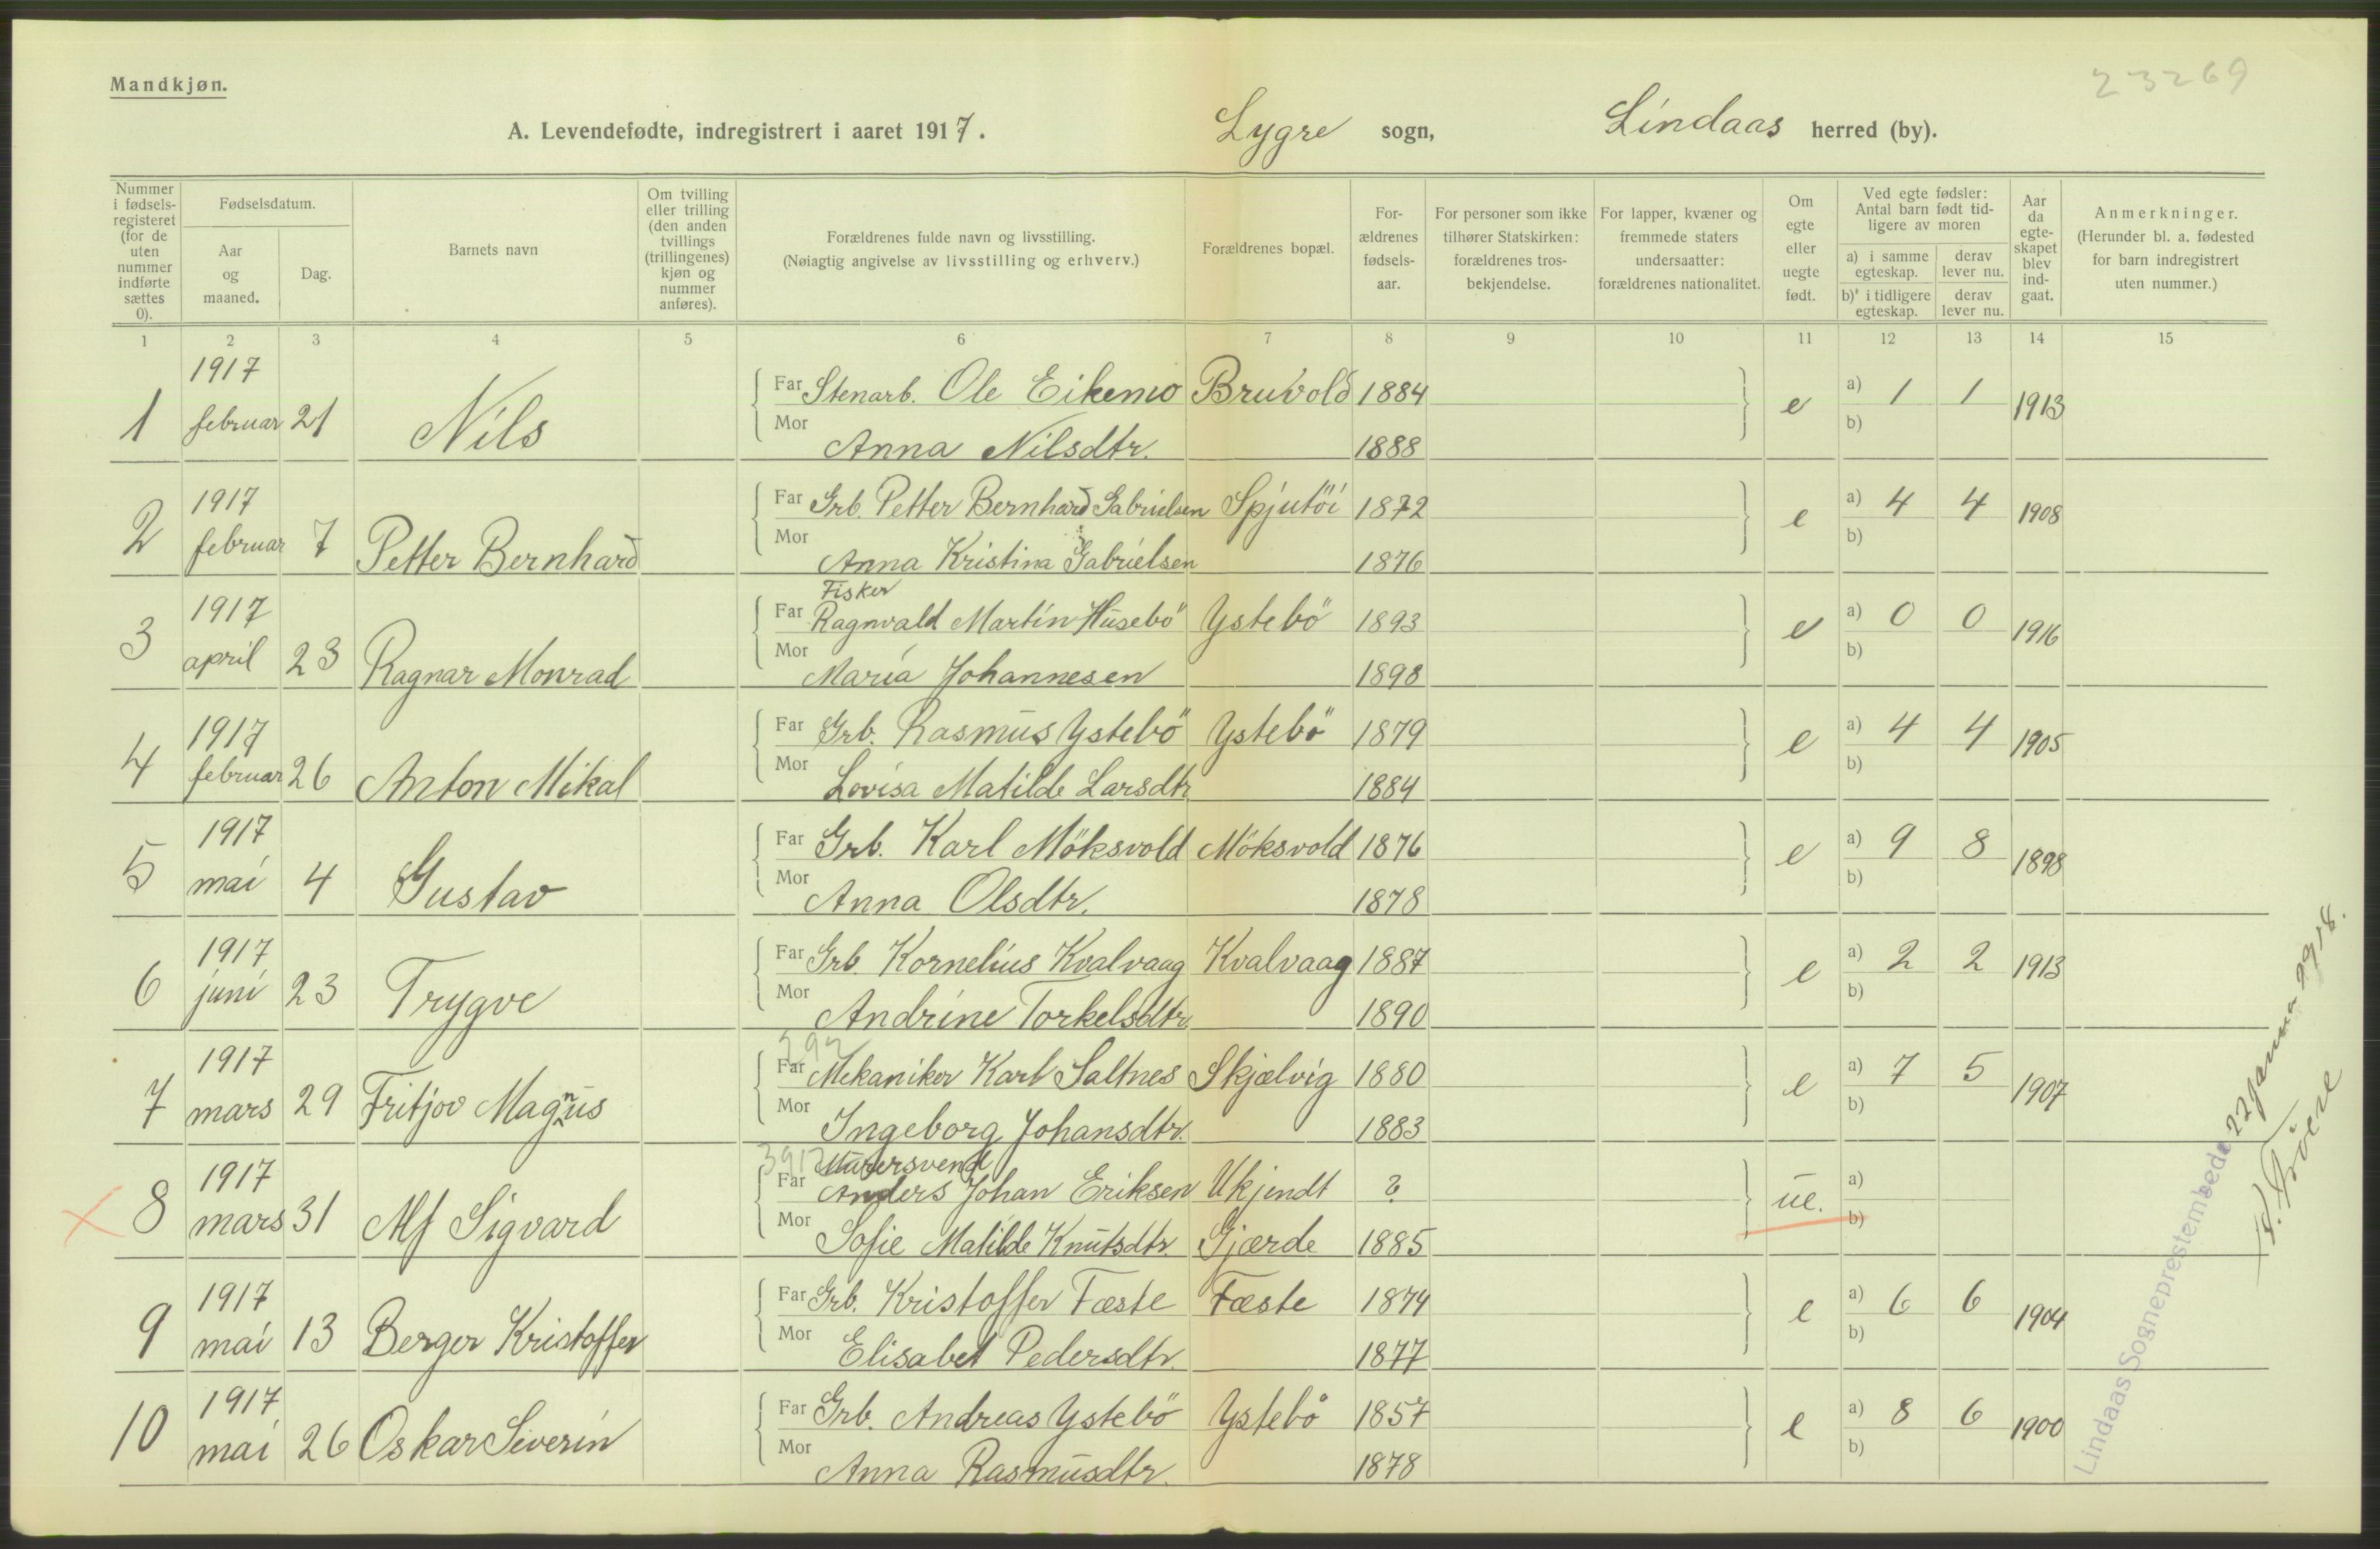 Mandkjøn.
23269
A. Levendefødte, indregistrert i aaret 1917. Lygre sogn, Lindaas herred (by).
Nummer i fødselsregisteret (for de uten nummer indførte sættes 0).
Fødselsdatum.
Aar og maaned.
Dag.
Barnets navn
Om tvilling eller trilling (den anden tvillings (trillingenes) kjøn og nummer anføres).
Forældrenes fulde navn og livsstilling.
(Nøiagtig angivelse av livsstilling og erhverv.)
Forældrenes bopæl.
Forældrenes fødselsaar.
For personer som ikke tilhører Statskirken: forældrenes trosbekjendelse.
For lapper, kvæner og fremmede staters undersaatter: forældrenes nationalitet.
Om egte eller uegte født.
Ved egte fødsler: Antal barn født tidligere av moren
a) i samme egteskap. derav lever nu.
b) i tidligere egteskap. derav lever nu.
Aar da egteskapet blev indgaat.
Anmerkninger.
(Herunder bl. a. fødested for barn indregistrert uten nummer.)
1 2 3 4 5 6 7 8 9 10 11 12 13 14 15
1 1917 februar 21 Nils Far Stenarb. Ole Eikemo Bruvold 1884 e a) 1 1 1913
Mor Anna Nilsdtr. 1888 b)
2 1917 februar 7 Petter Bernhard Far Grb. Petter Bernhard Gabrielsen Spjutöi 1872 e a) 4 4 1908
Mor Anna Kristina Gabrielsen 1876 b)
3 1917 april 23 Ragnar Monrad Far Fisker Ragnvald Martin Husebö Ystebö 1893 e a) 0 0 1916
Mor Maria Johannesen 1898 b)
4 1917 februar 26 Anton Mikal Far Grb. Rasmus Ystebö Ystebö 1879 e a) 4 4 1905
Mor Lovisa Matilde Larsdtr 1884 b)
5 1917 mai 4 Gustav Far Grb. Karl Möksvold Möksvold 1876 e a) 9 8 1898
Mor Anna Olsdtr. 1878 b)
6 1917 juni 23 Trygve Far Grb. Kornelius Kvalvaag Kvalvaag 1887 e a) 2 2 1913
Mor Andrine Torkelsdtr. 1890 b)
7 1917 mars 29 Fritjov Magnus Far Mekaniker Karl Saltnes Skjælvig 1880 e a) 7 5 1907
Mor Ingeborg Johansdtr. 1883 b)
8 1917 mars 31 Alf Sigvard Far Murersvend Anders Johan Eriksen Ukjendt ? ue. a)
Mor Sofie Matilde Knutsdtr. Gjærde 1885 b)
9 1917 mai 13 Berger Kristoffer Far Grb. Kristoffer Fæste Fæste 1874 e a) 6 6 1904
Mor Elisabet Pedersdtr. 1877 b)
10 1917 mai 26 Oskar Severin Far Grb. Andreas Ystebö Ystebö 1857 e a) 8 6 1900
Mor Anna Rasmusdtr. 1878 b)
Lindaas Sogneprestembede 22 1918.